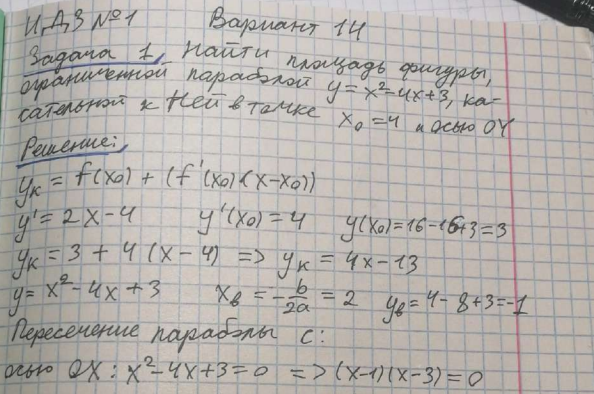 ИДЗ №1 Вариант 14
Задача 1. Найти площадь фигуры,
ограниченной параболой y = x² - 4x + 3, ка-
сательной к ней в точке x₀ = 4 и осью OY
Решение:
yк = f(x₀) + (f'(x₀)·(x-x₀))
y' = 2x - 4 y'(x₀) = 4 y(x₀) = 16 - 16 + 3 = 3
yк = 3 + 4(x - 4) => yк = 4x - 13
y = x² - 4x + 3 xв = -b/2a = 2 yв = 4 - 8 + 3 = -1
Пересечение параболы с:
осью OX: x² - 4x + 3 = 0 => (x-1)(x-3) = 0